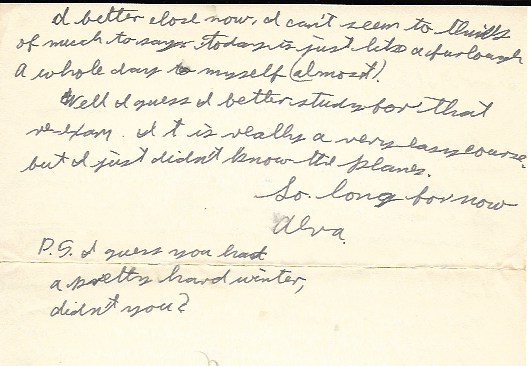 I better close now, I can't seem to think
of much to say. Today is just like a furlough
A whole day to myself (almost).
Well I guess I better study for that
re-exam. It is really a very easy course,
but I just didn't know the planes.
So long for now
Alva.
P.S. I guess you had
a pretty hard winter,
didn't you?